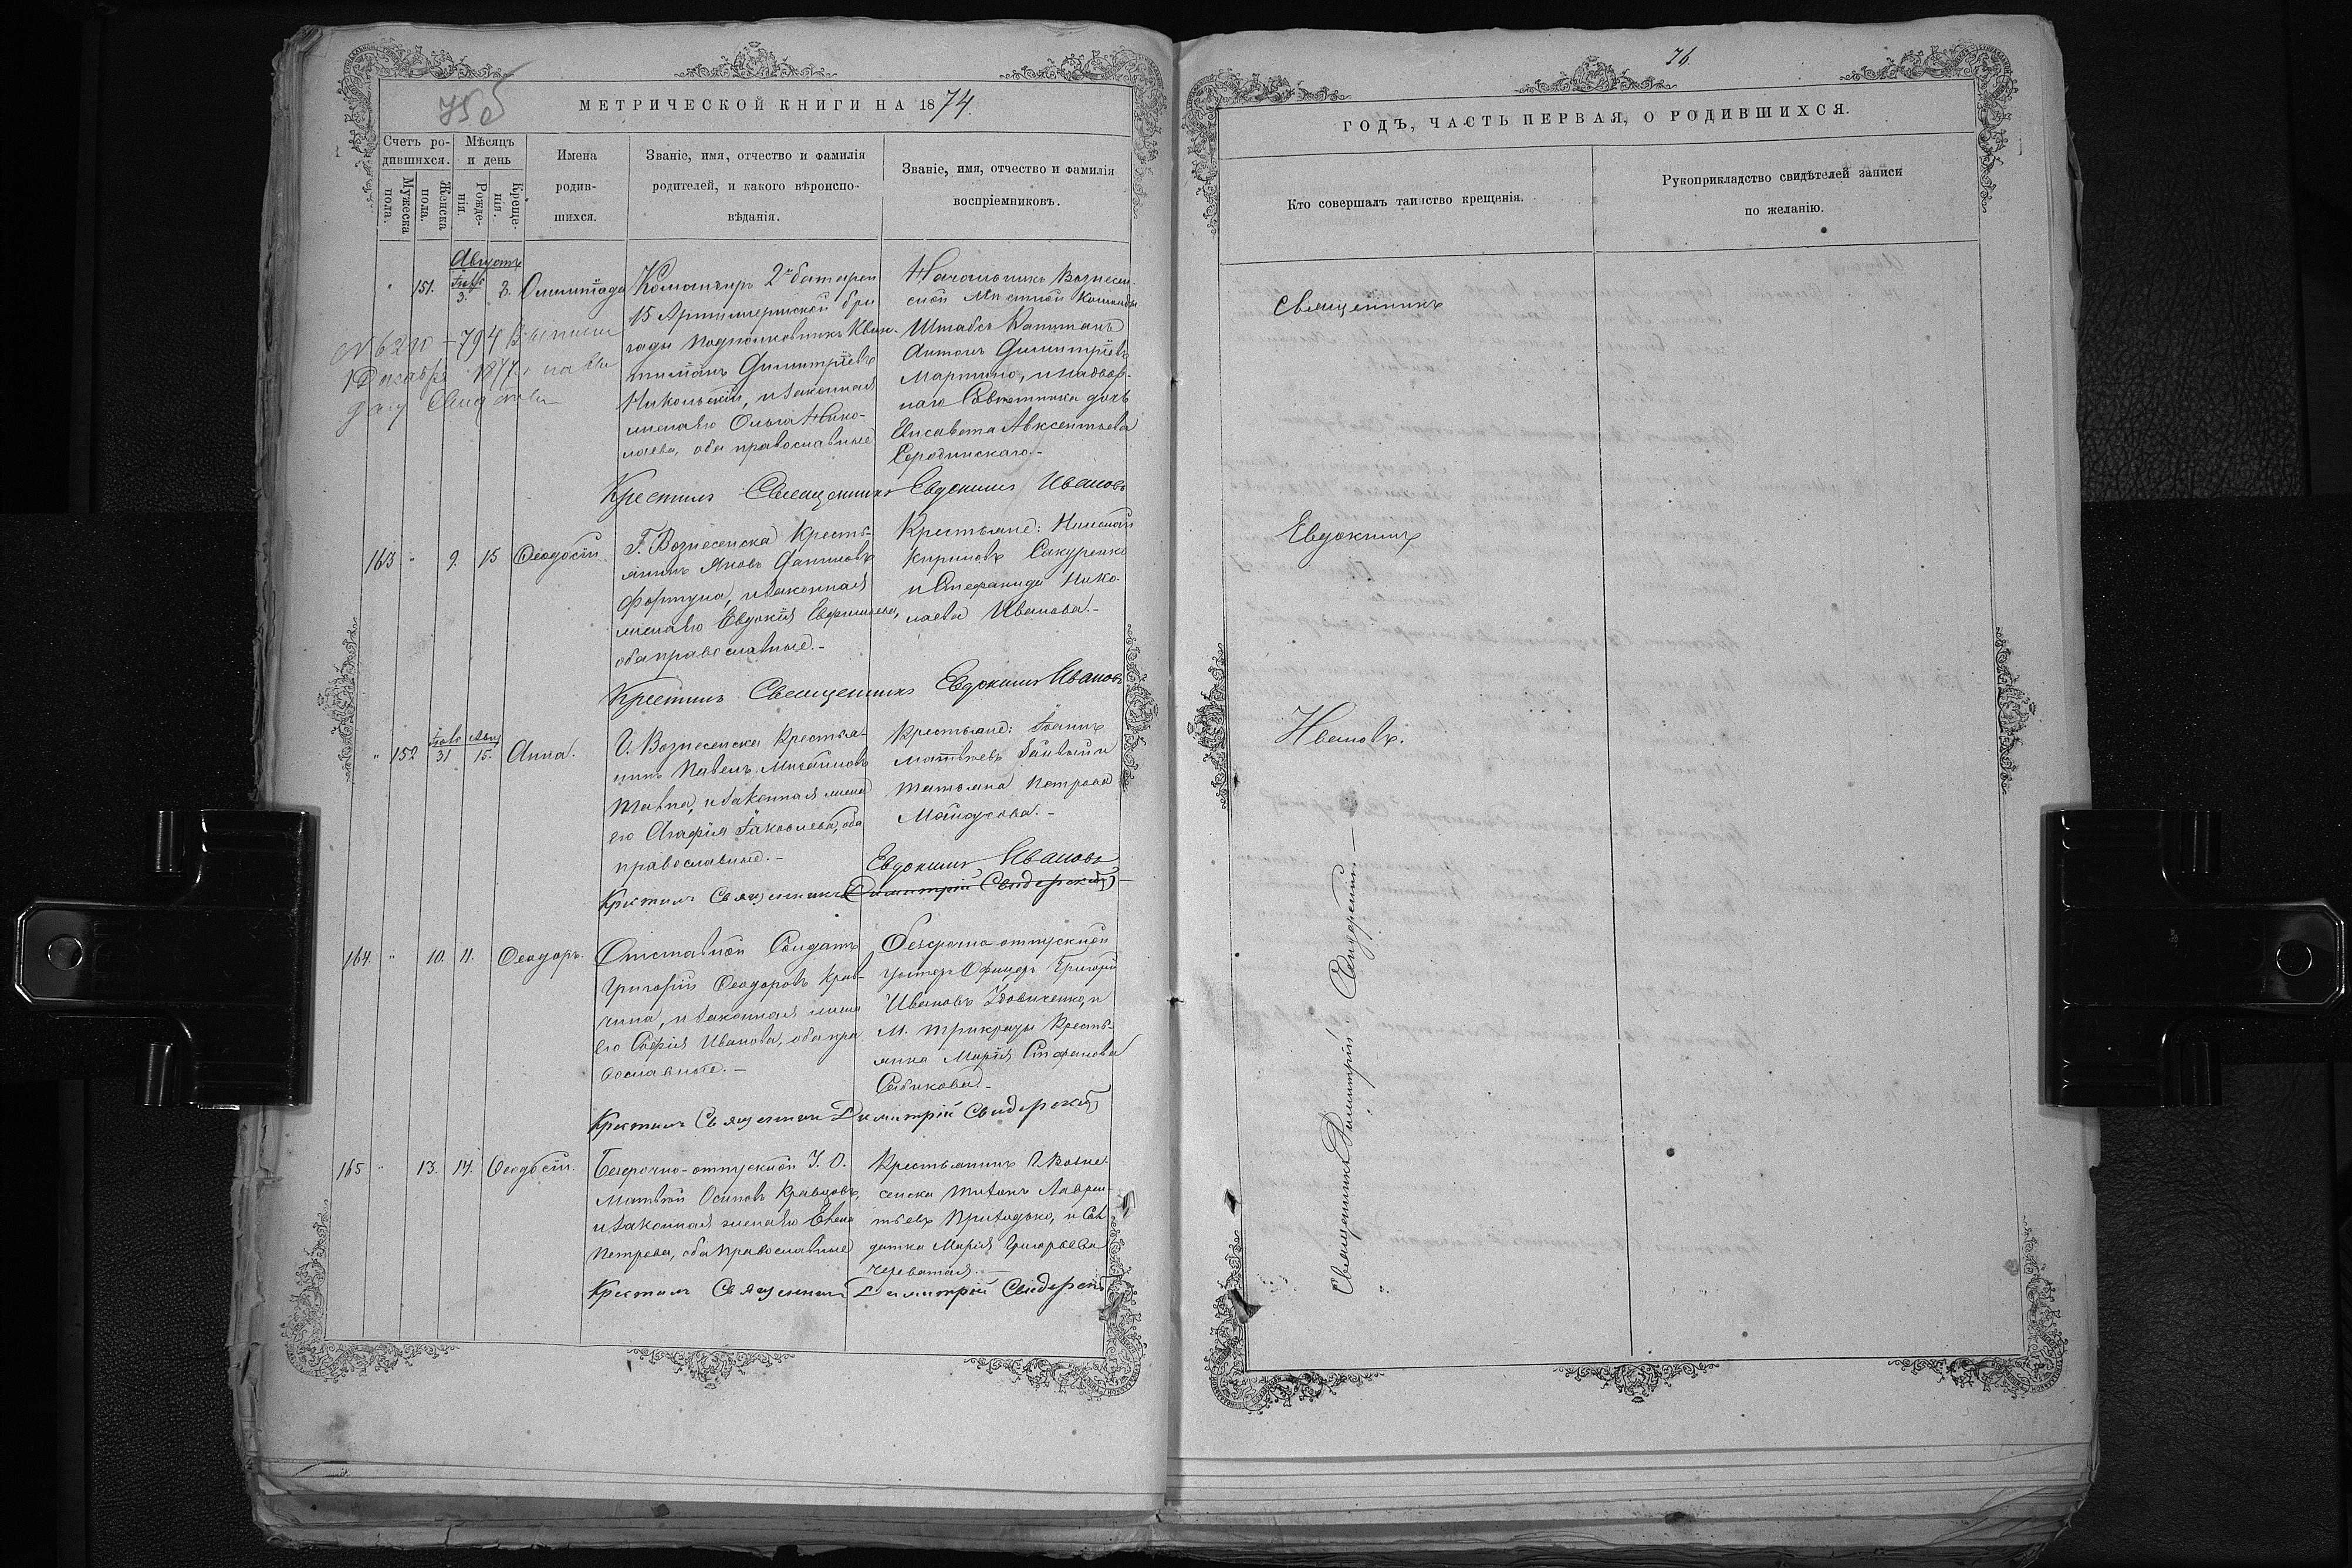 75 об
МЕТРИЧЕСКОЙ КНИГИ НА 1874.
Счетъ ро-
дившихся.
Мѣсяцъ
и день
Мужеска
пола.
Женска
пола.
Рожде-
нія.
Креще-
нія.
Имена
родив-
шихся.
Званіе, имя, отчество и фамилія
родителей, и какого вѣроиспо-
вѣданія.
Званіе, имя, отчество и фамилія
воспріемниковъ.
Августъ
" 151. 3. 8. Олимпіада
Командиръ 2й батареи
15 Артиллерійской бри
гады Подполковникъ Квин-
тиліанъ Димитріевъ
Никольскій, и законная
жена его Ольга Нико-
лаева, оба православные
Начальникъ Вознесен-
ской Мѣстной Команды
Штабсъ Капитанъ
Антонъ Димитріевъ
Мартино, и надвор-
наго Совѣтника дочь
Елисавета Авксентьева
№ 6290 — 794
1 Декабря 1877
Крестилъ Священникъ Евдокимъ Ивановъ
163 " 9. 15 Ѳеодосій
Г. Вознесенска Кресть-
янинъ Яковъ Даниловъ
Фортуна, и законная
жена его Евдокія
оба православные.-
Крестьяне:
Кириловъ
и Стефанида Нико-
лаева Иванова.-
Крестилъ Священникъ Евдокимъ Ивановъ
" 152 31 Авг 15. Анна.
Г. Вознесенска Крестья-
нинъ Павелъ Михайловъ
и законная жена
его Агафія Іаковлева, оба
православные.-
Крестьяне: Іоаннъ
Матвѣевъ
Татьяна Петрова
Евдокимъ Ивановъ
Крестилъ Священникъ Димитрій Свидерскій
164. " 10. 11. Ѳеодоръ.
Отставной Солдатъ
Григорій Ѳеодоровъ Крав-
чина, и законная жена
его Софія Иванова, оба пра
вославные.-
безсрочно отпускной
Унтеръ Офицеръ Григорій
Ивановъ Удовиченко, и
М. Трикраты Кресть-
янка Марія Стефанова
Крестилъ Священник Димитрій Свидерскій
165 " 13. 14. Ѳеодосій.
Безсрочно-отпускной У. О.
Матвѣй Осиповъ Кравцовъ,
и законная жена его Елена
Петрова, оба православные
Крестьянинъ Г. Возне-
сенска Титъ Лаврен-
тьевъ Приходько, и Сол
датка Марія Григорьева
Череватая.-
Крестилъ Священник Димитрій Свидерскій
76
ГОДЪ, ЧАСТЬ ПЕРВАЯ, О РОДИВШИХСЯ.
Кто совершалъ таинство крещенія.
Рукоприкладство свидѣтелей записи
по желанію.
Священникъ
Евдокимъ
Ивановъ.
Священникъ Димитрій Свидерскій.-